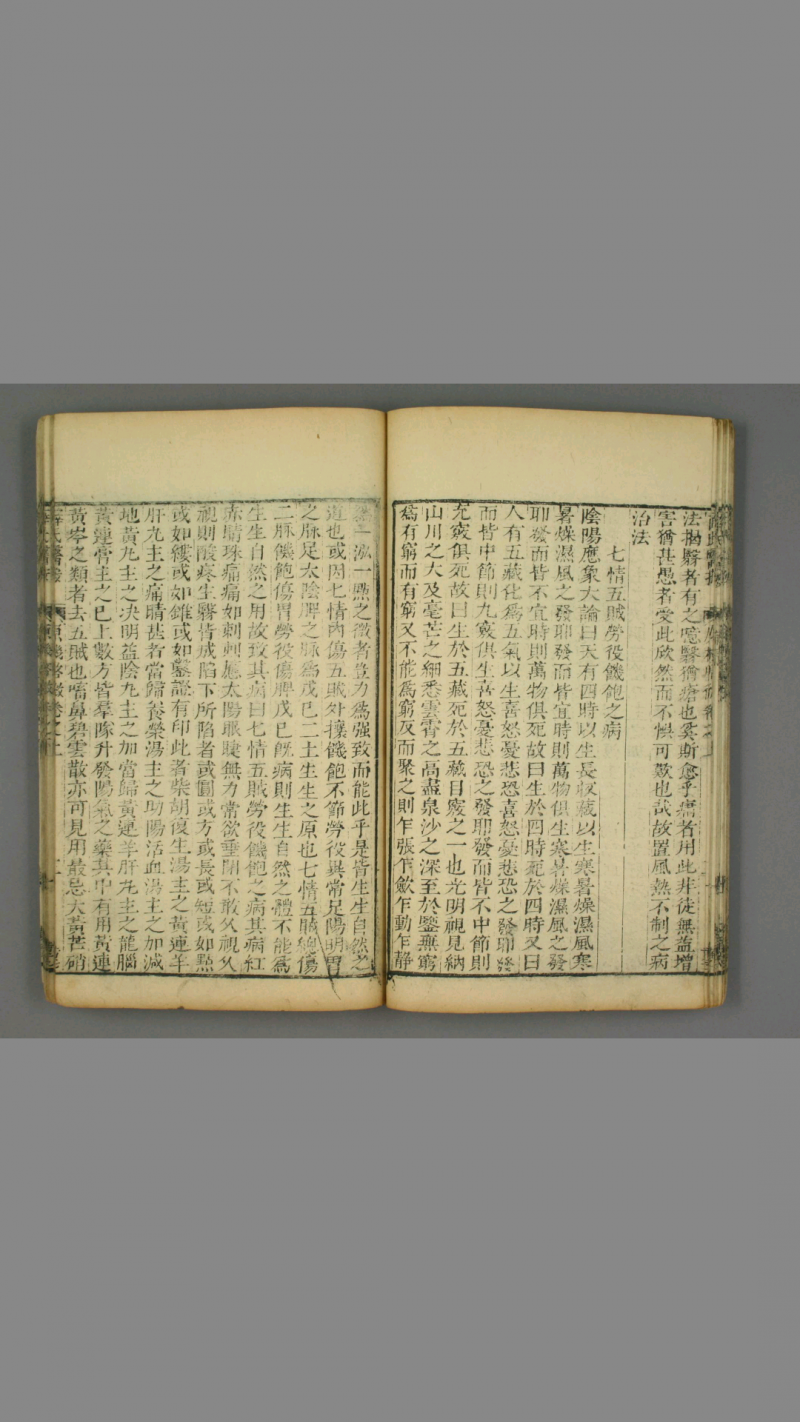 法搊翳者有之噫翳猶瘡也奚斯愈乎庸者用此非徒無益增
害猶甚愚者受此欣然而不懼可歎也哉故置風熱不制之病
治法
七情五賊勞役饑飽之病
陰陽應象大論曰天有四時以生長収藏以生寒暑燥濕風寒
暑燥濕風之發耶發而皆宜時則萬物俱生寒暑燥濕風之發
耶發而皆不宜時則萬物俱死故曰生於四時死於四時又曰
人有五藏化爲五氣以生喜怒憂悲恐喜怒憂悲恐之發耶發
而皆中節則九竅俱生喜怒憂悲恐之發耶發而皆不中節則
九竅俱死故曰生於五藏死於五藏目竅之一也光明視見納
山川之大及毫芒之細悉雲霄之高盡泉沙之深至於鑒無窮
爲有窮而有窮又不能爲窮反而聚之則乍張乍歛乍動乍靜
爲一泓一點之微者豈力爲強致而能此乎是皆生生自然之
道也或因七情內傷五賊外攘饑飽不節勞役異常足陽明胃
之脉足太陰脾之脉爲戊已二土生生之原也七情五賊總傷
二脉饑飽傷胃勞役傷脾戊已旣病則生生自然之體不能爲
生生自然之用故致其病曰七情五賊勞役饑飽之病其病紅
赤睛珠痛痛如刺刺應太陽眼睫無力常欲垂閉不敢久視久
視則酸疼生翳皆成陷下所陷者或圓或方或長或短或如點
或如縷或如錐或如鑿證有印此者柴胡復生湯主之黃連羊
肝丸主之痛睛甚者當歸養榮湯主之助陽活血湯主之加減
地黃丸主之决明益陰丸主之加當歸黃連羊肝丸主之龍腦
黃連膏主之已上數方皆羣隊升發陽氣之藥其中有用黃連
黃岑之類者去五賊也㗜鼻碧雲散亦可見用最忌大黃芒硝
薛氏醫按　原機啓微卷之上